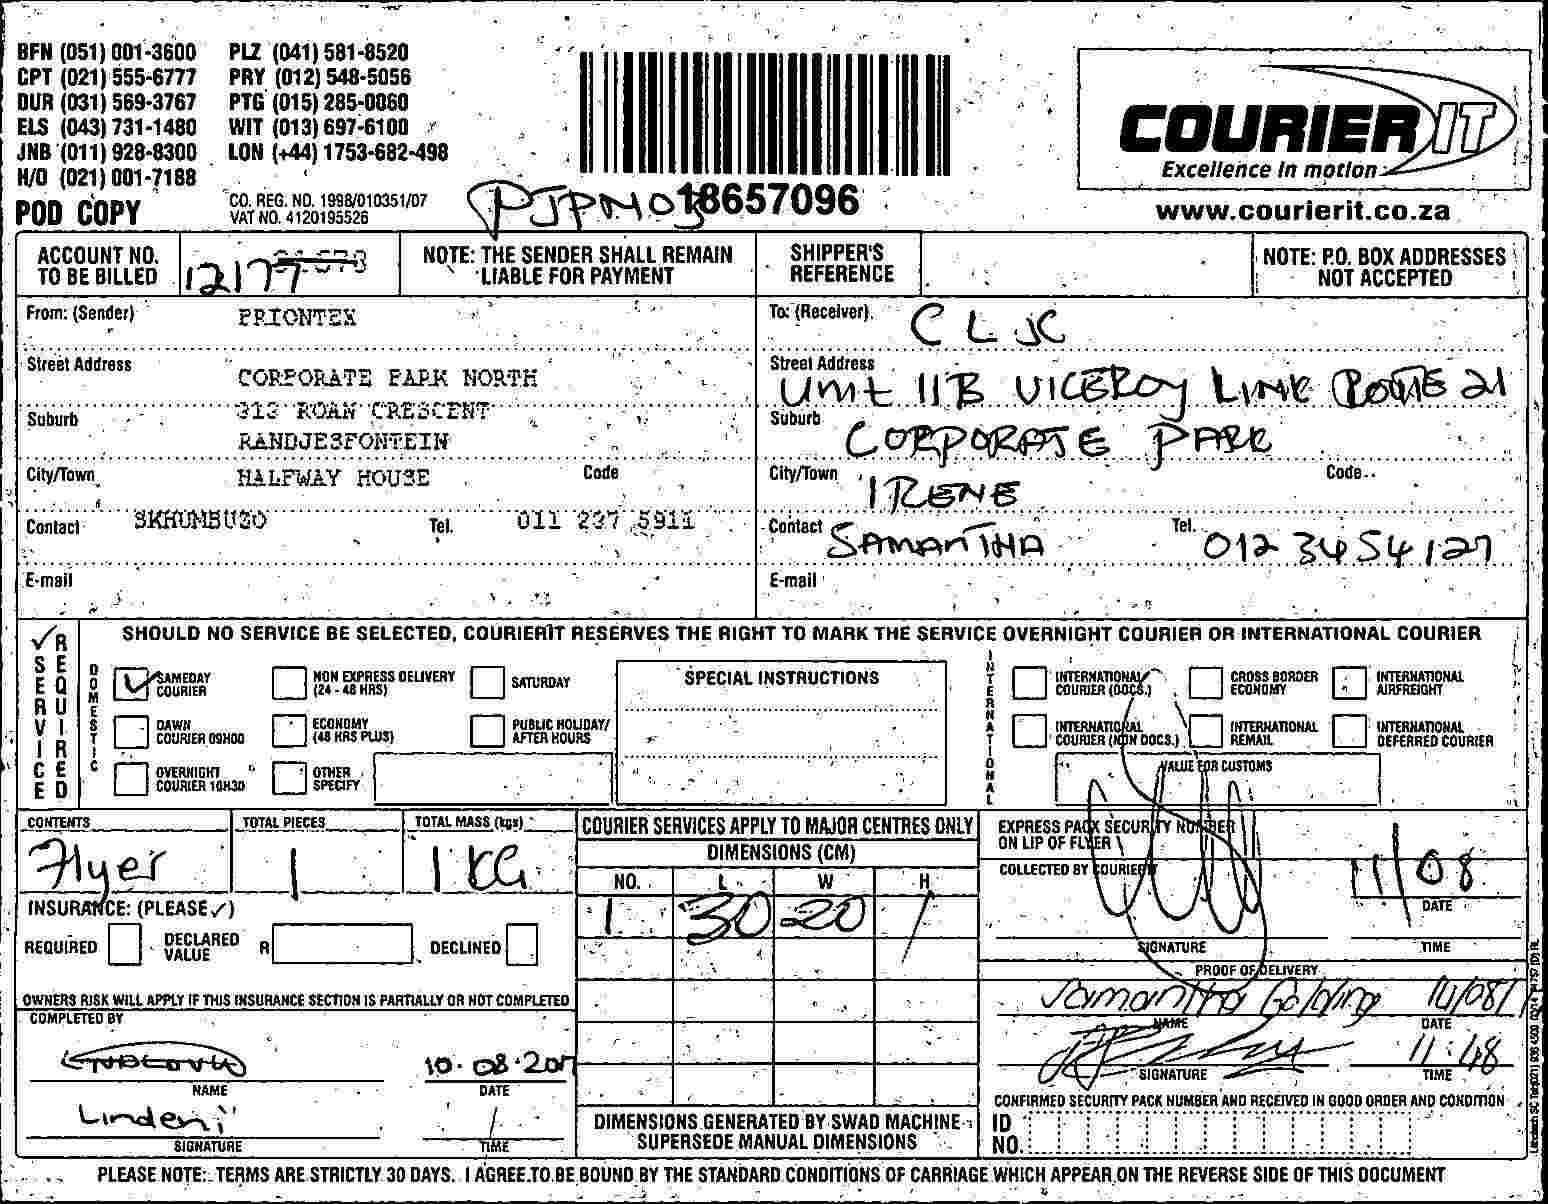 BFN (051) 001-3600 PLZ (041) 581-8520
CPT (021) 555-6777 PRY (012) 548-5056
DUR (031) 569-3767 PTG (015) 285-0860
ELS (043) 731-1480 WIT (013) 697-6100
JNB (011) 928-8300 LON (+44) 1753-682-498
H/O (021) 001-7188
POD COPY
CO. REG. NO. 1998/010351/07
VAT NO. 4120195526
PJPM03
18657096
COURIER IT
Excellence in motion
www.courierit.co.za
ACCOUNT NO. TO BE BILLED 12177
NOTE: THE SENDER SHALL REMAIN LIABLE FOR PAYMENT
SHIPPER'S REFERENCE
NOTE: P.O. BOX ADDRESSES NOT ACCEPTED
From: (Sender) PRIONTEX
Street Address CORPORATE PARK NORTH
Suburb 313 ROAN CRESCENT
RANDJESFONTEIN
City/Town HALFWAY HOUSE Code
Contact SKHUMBUZO Tel. 011 237 5911
E-mail
To: (Receiver) CLJC
Street Address Unit 11B VICEROY LINK ROUTE 21
Suburb CORPORATE PARK
City/Town IRENE Code
Contact SAMANTHA Tel. 012 3454127
E-mail
✓ SERVICE REQUIRED
SHOULD NO SERVICE BE SELECTED, COURIERIT RESERVES THE RIGHT TO MARK THE SERVICE OVERNIGHT COURIER OR INTERNATIONAL COURIER
DOMESTIC
✓ SAMEDAY COURIER
NON EXPRESS DELIVERY (24 - 48 HRS)
SATURDAY
DAWN COURIER 09H00
ECONOMY (48 HRS PLUS)
PUBLIC HOLIDAY/ AFTER HOURS
OVERNIGHT COURIER 10H30
OTHER SPECIFY
SPECIAL INSTRUCTIONS
INTERNATIONAL
INTERNATIONAL COURIER (DOCS.)
CROSS BORDER ECONOMY
INTERNATIONAL AIRFREIGHT
INTERNATIONAL COURIER (NON DOCS.)
INTERNATIONAL REMAIL
INTERNATIONAL DEFERRED COURIER
VALUE FOR CUSTOMS
CONTENTS Flyer
TOTAL PIECES 1
TOTAL MASS (kgs) 1 KG
INSURANCE: (PLEASE ✓)
REQUIRED DECLARED VALUE R DECLINED
OWNERS RISK WILL APPLY IF THIS INSURANCE SECTION IS PARTIALLY OR NOT COMPLETED
COMPLETED BY
10.08.201
NAME DATE
Lindeni
SIGNATURE TIME
COURIER SERVICES APPLY TO MAJOR CENTRES ONLY
DIMENSIONS (CM)
NO. L W H
1 30 20 /
DIMENSIONS GENERATED BY SWAD MACHINE SUPERSEDE MANUAL DIMENSIONS
EXPRESS PACK SECURITY NUMBER ON LIP OF FLYER
COLLECTED BY COURIERIT
11/08
DATE
SIGNATURE TIME
PROOF OF DELIVERY
Samantha Golding
NAME DATE
11:48
SIGNATURE TIME
CONFIRMED SECURITY PACK NUMBER AND RECEIVED IN GOOD ORDER AND CONDITION
ID NO.
PLEASE NOTE: TERMS ARE STRICTLY 30 DAYS. I AGREE TO BE BOUND BY THE STANDARD CONDITIONS OF CARRIAGE WHICH APPEAR ON THE REVERSE SIDE OF THIS DOCUMENT